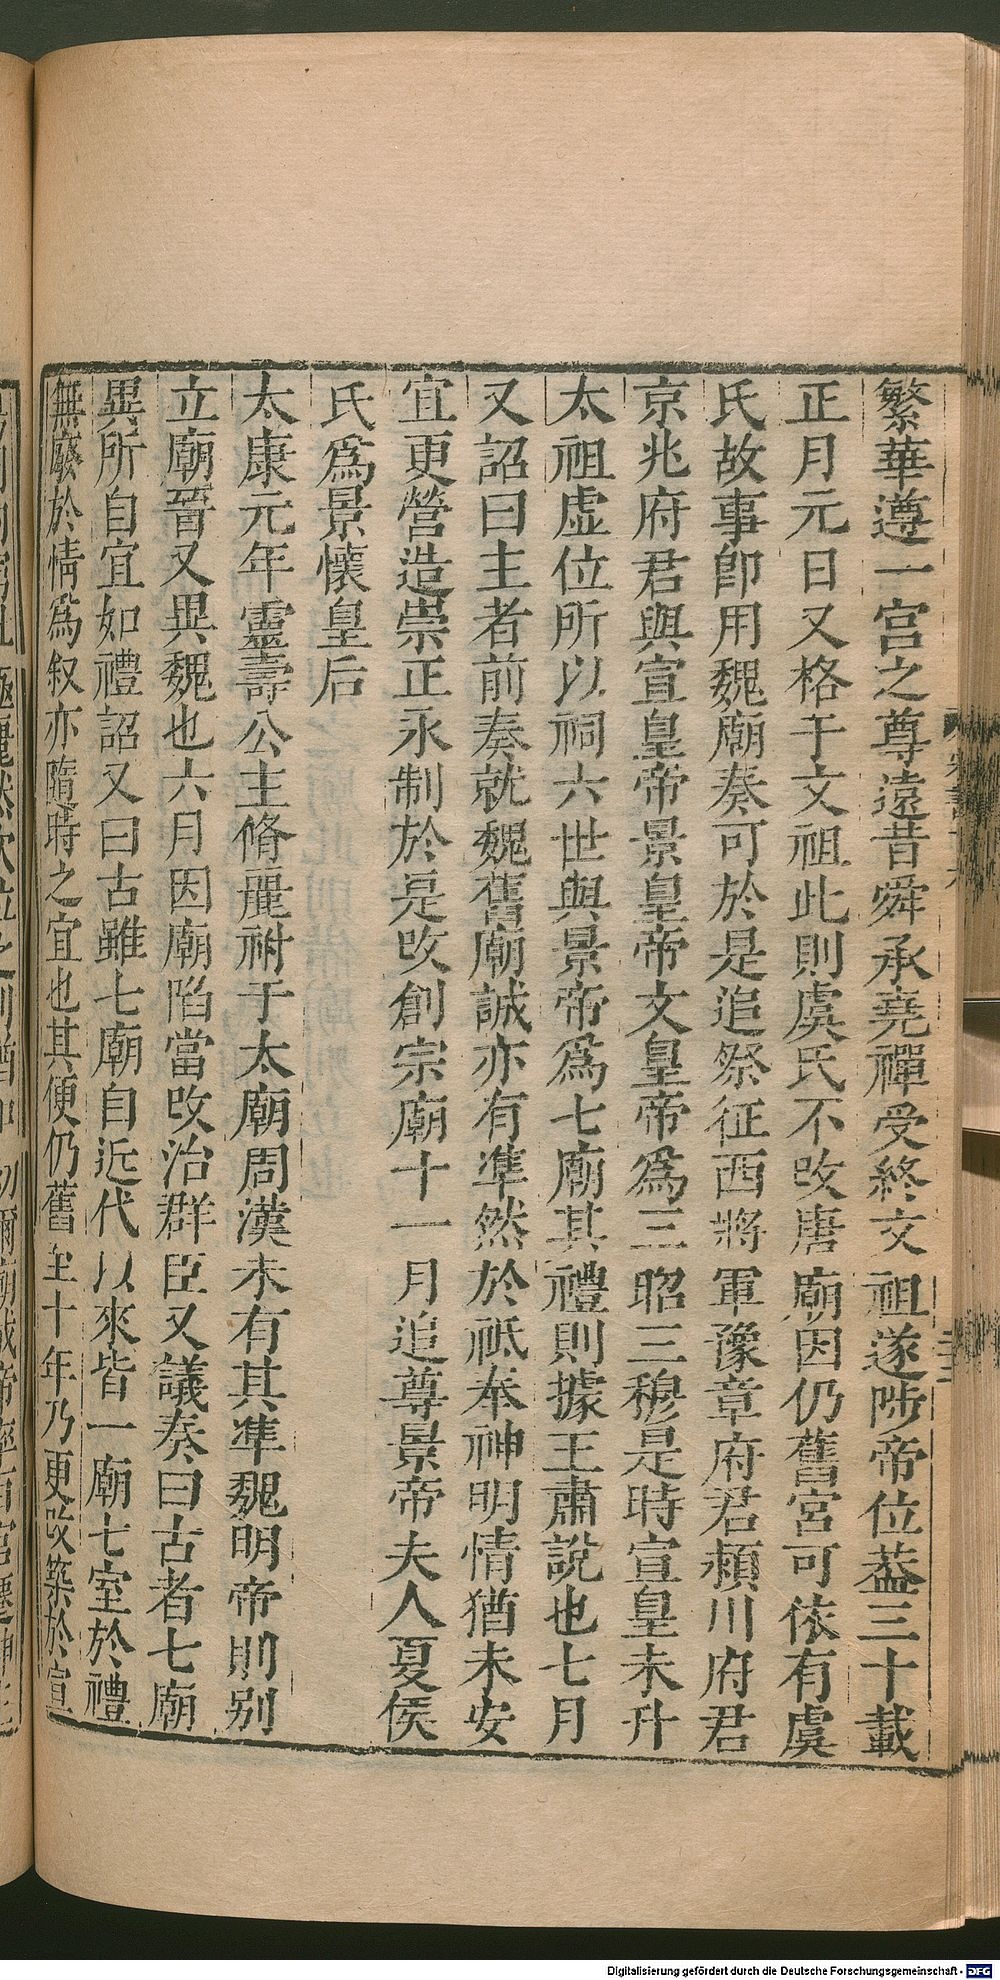 繁華遵一宮之尊遠昔舜承堯禪受終文祖遂陟帝位葢三十載
正月元日又格于文祖此則虞氏不改唐廟因仍舊宮可依有虞
氏故事卽用魏廟奏可於是追祭征西將軍豫章府君潁川府君
京兆府君與宣皇帝景皇帝文皇帝爲三昭三穆是時宣皇未升
太祖虛位所以祠六世與景帝爲七廟其禮則據王肅說也七月
又詔曰主者前奏就魏舊廟誠亦有準然於祗奉神明情猶未安
宜更營造崇正永制於是改創宗廟十一月追尊景帝夫人夏侯
氏爲景懷皇后
太康元年靈壽公主脩麗祔于太廟周漢未有其準魏明帝則别
立廟晉又異魏也六月因廟陷當改治群臣又議奏曰古者七廟
異所自宜如禮詔又曰古雖七廟自近代以來皆一廟七室於禮
無廢於情爲叙亦隨時之宜也其便仍舊至十年乃更改築於宣
Digitalisierung gefördert durch die Deutsche Forschungsgemeinschaft - DFG